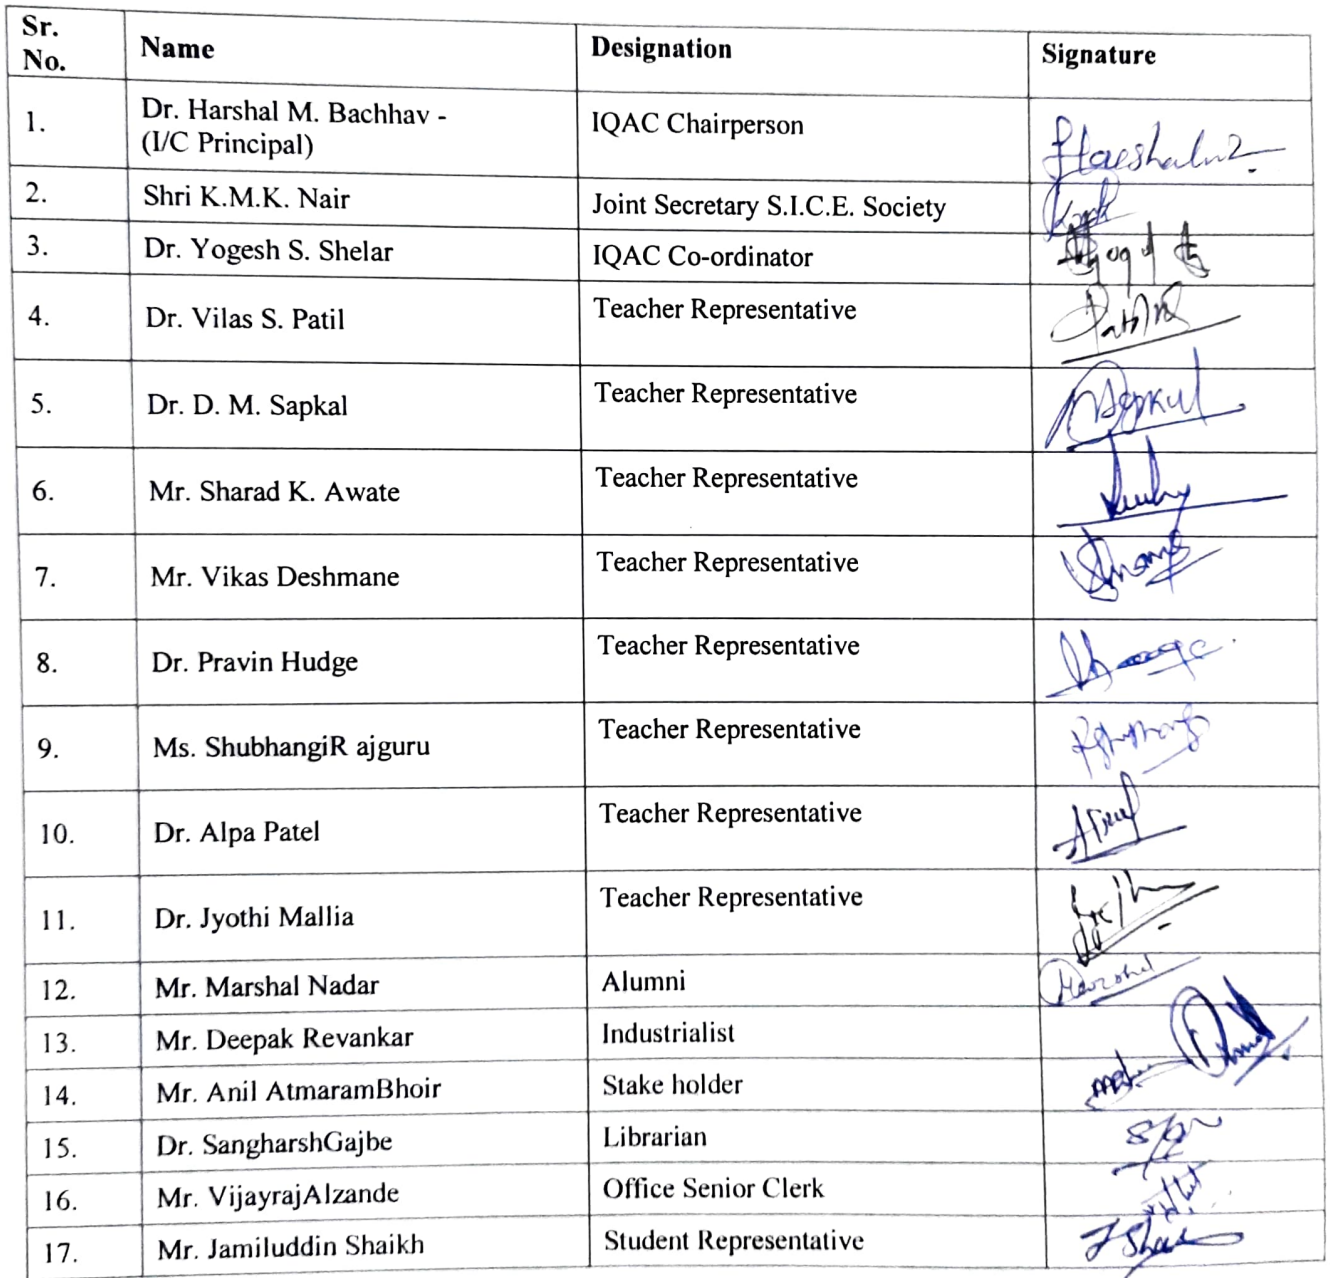 Sr. No. Name Designation Signature
1. Dr. Harshal M. Bachhav - IQAC Chairperson
(I/C Principal)
2. Shri K.M.K. Nair Joint Secretary S.I.C.E. Society
3. Dr. Yogesh S. Shelar IQAC Co-ordinator
4. Dr. Vilas S. Patil Teacher Representative
5. Dr. D. M. Sapkal Teacher Representative
6. Mr. Sharad K. Awate Teacher Representative
7. Mr. Vikas Deshmane Teacher Representative
8. Dr. Pravin Hudge Teacher Representative
9. Ms. ShubhangiR ajguru Teacher Representative
10. Dr. Alpa Patel Teacher Representative
11. Dr. Jyothi Mallia Teacher Representative
12. Mr. Marshal Nadar Alumni
13. Mr. Deepak Revankar Industrialist
14. Mr. Anil AtmaramBhoir Stake holder
15. Dr. SangharshGajbe Librarian
16. Mr. VijayrajAlzande Office Senior Clerk
17. Mr. Jamiluddin Shaikh Student Representative